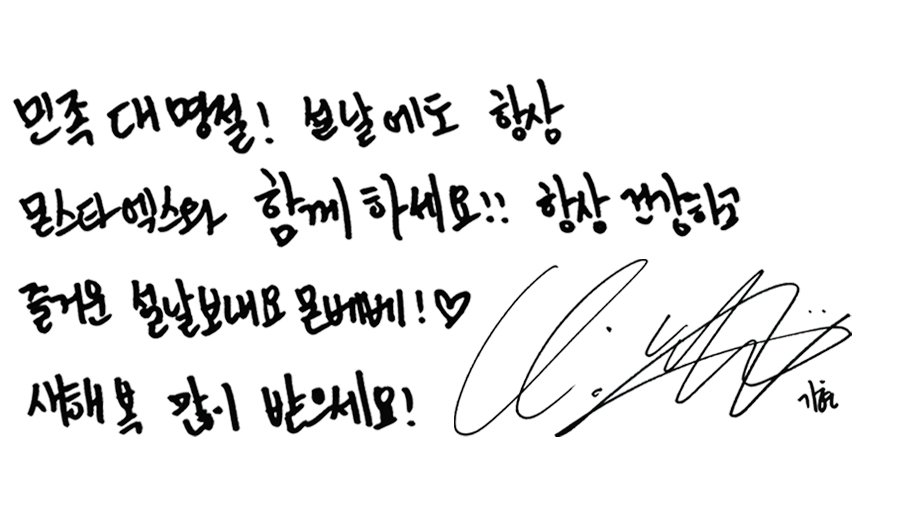 민족 대명절! 설날에도 항상
몬스타엑스와 함께하세요!! 항상 건강하고
즐거운 설날보내요 몬베베!♡
새해 복 많이 받으세요!